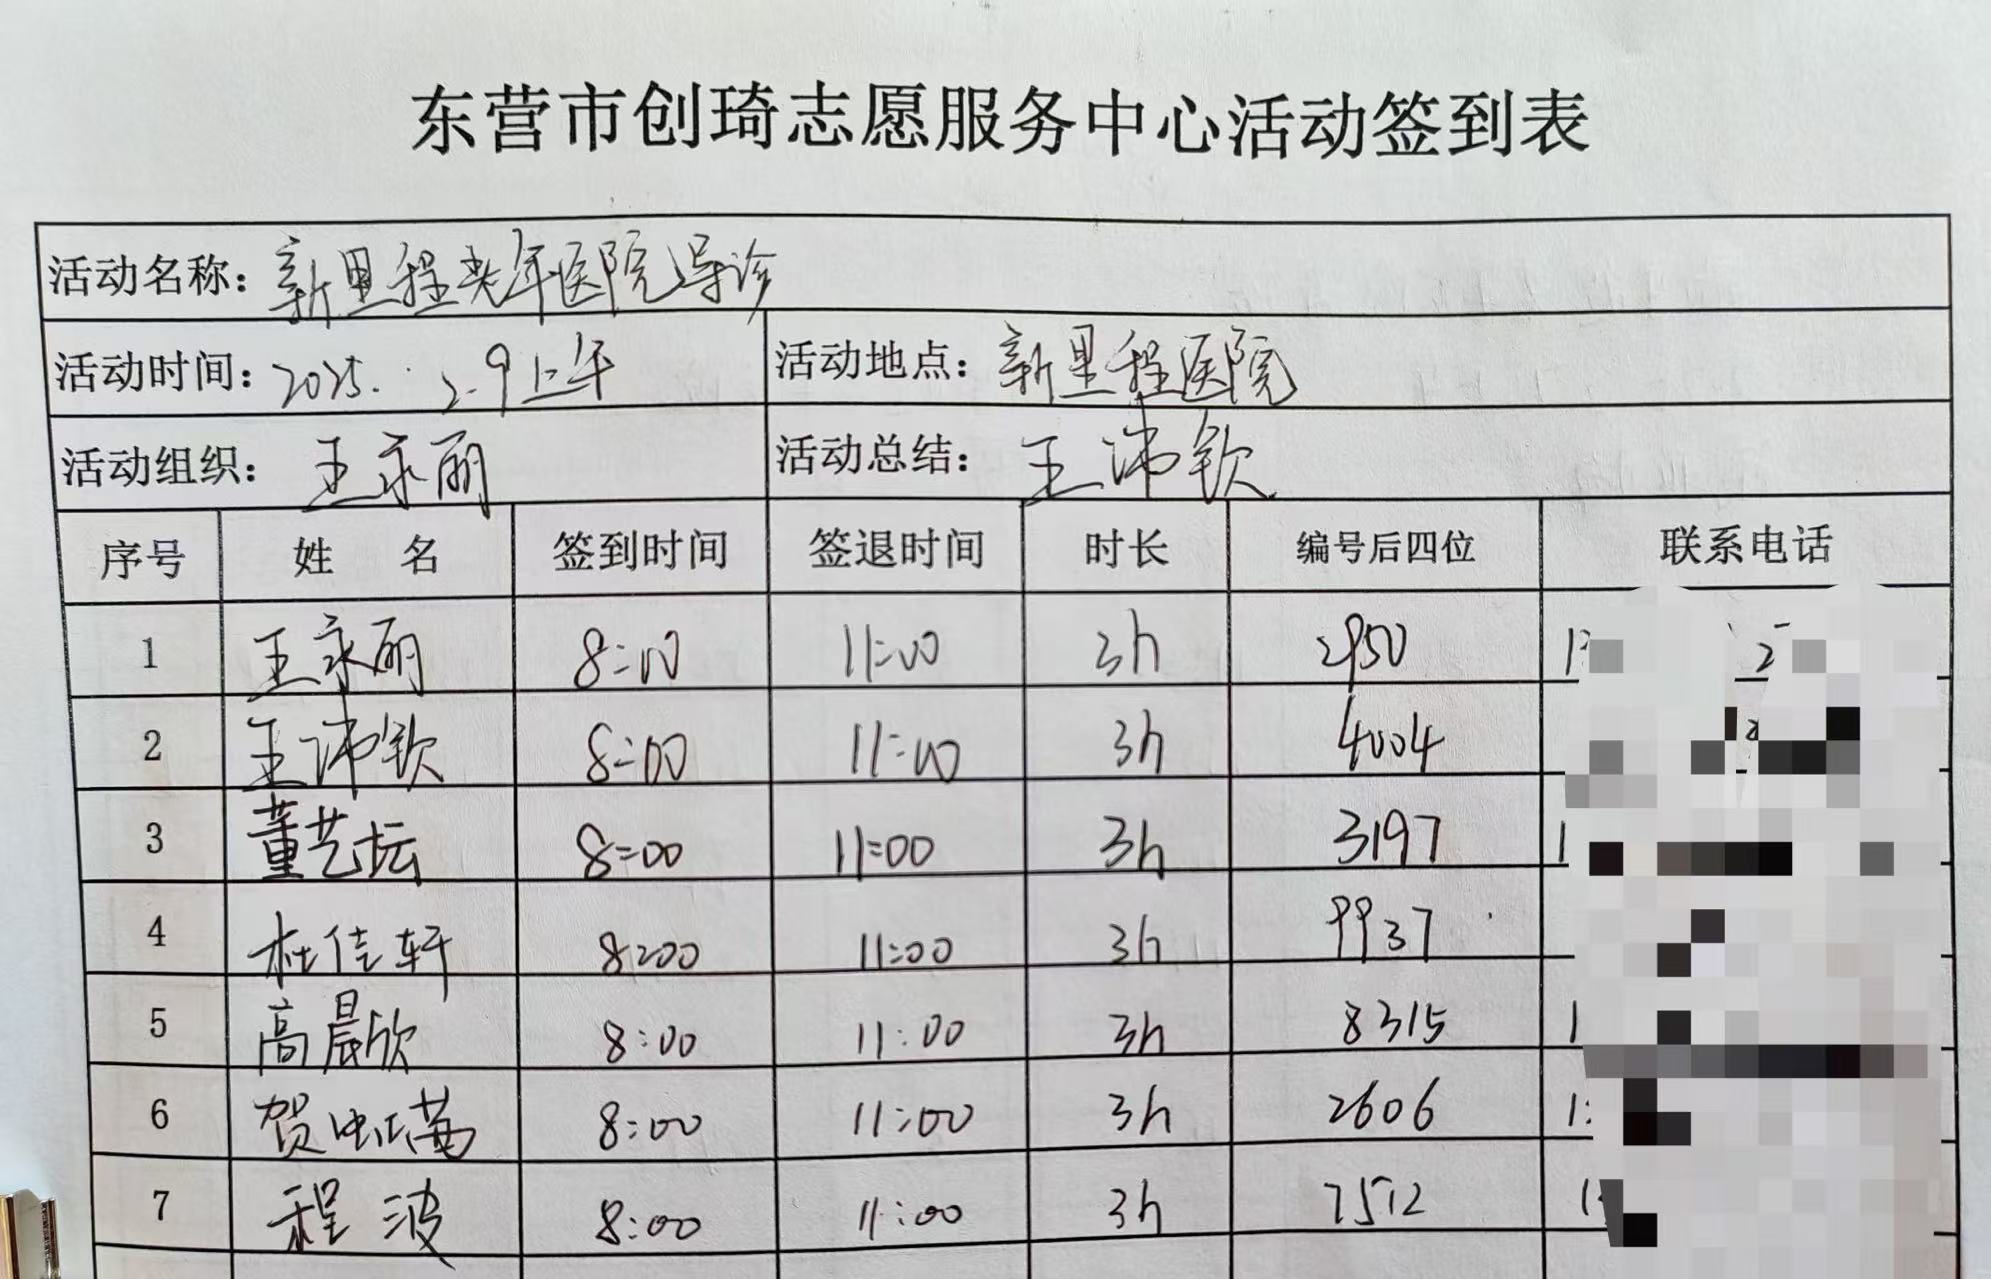 东营市创琦志愿服务中心活动签到表
活动名称：新里程老年医院导诊
活动时间：2025. 2.9上午 活动地点：新里程医院
活动组织：王永丽 活动总结：王沛钦
序号 姓 名 签到时间 签退时间 时长 编号后四位 联系电话
1 王永丽 8:00 11:00 3h 2950
2 王沛钦 8:00 11:00 3h 4004
3 董艺坛 8:00 11:00 3h 3197
4 杜佳轩 8:00 11:00 3h 9937
5 高晨欣 8:00 11:00 3h 8315
6 贺 8:00 11:00 3h 2606
7 程波 8:00 11:00 3h 7512